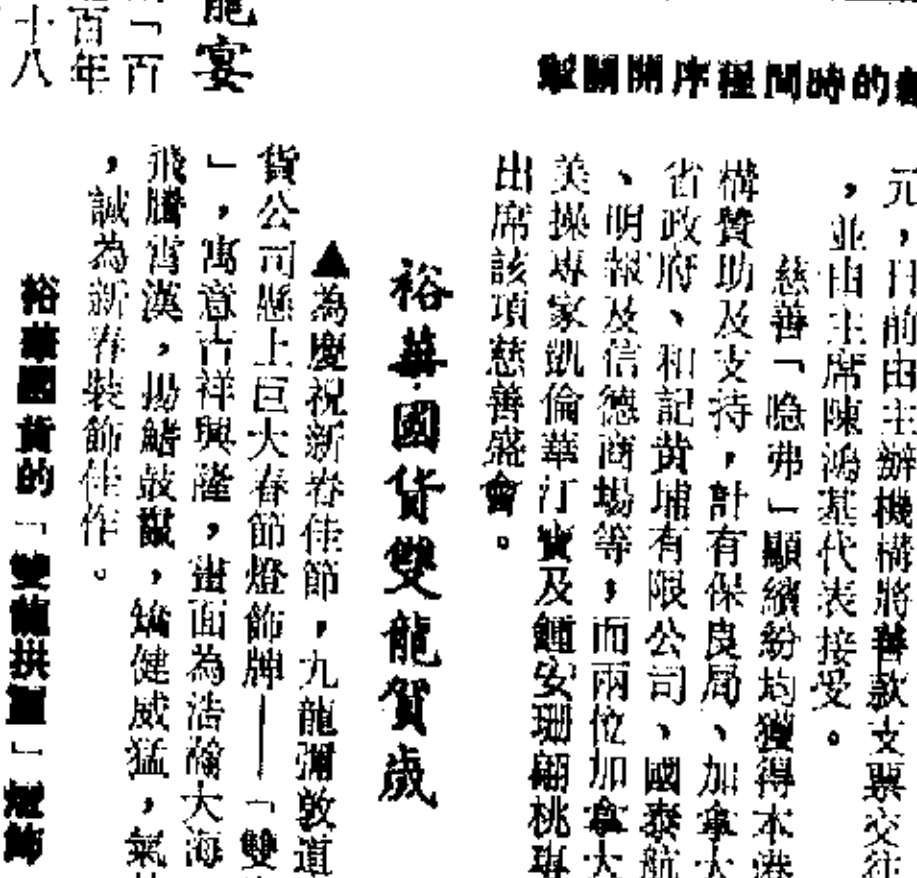 的時間程序開關掣
元，日前由主辦機構將善款支票交往
，並由主席陳鴻基代表接受。
慈善「隐弗」顯繽紛均獲得本港
構贊助及支持，計有保良局、加拿大
省政府、和記黃埔有限公司、國泰航
、明報及信德商場等，而兩位加拿大
美操專家凱倫華汀寶及鍾安珊
出席該項慈善盛會。
裕華國貨雙龍賀歲
▲為慶祝新春佳節，九龍彌敦道
貨公司懸上巨大春節燈飾牌——「雙
」，寓意吉祥興隆，畫面為浩瀚大海
飛騰霄漢，揚鰭鼓鬣，矯健威猛，氣
，誠為新春裝飾佳作。
裕華國貨的「雙龍拱」燈飾
龍宴
「百
百年
十八